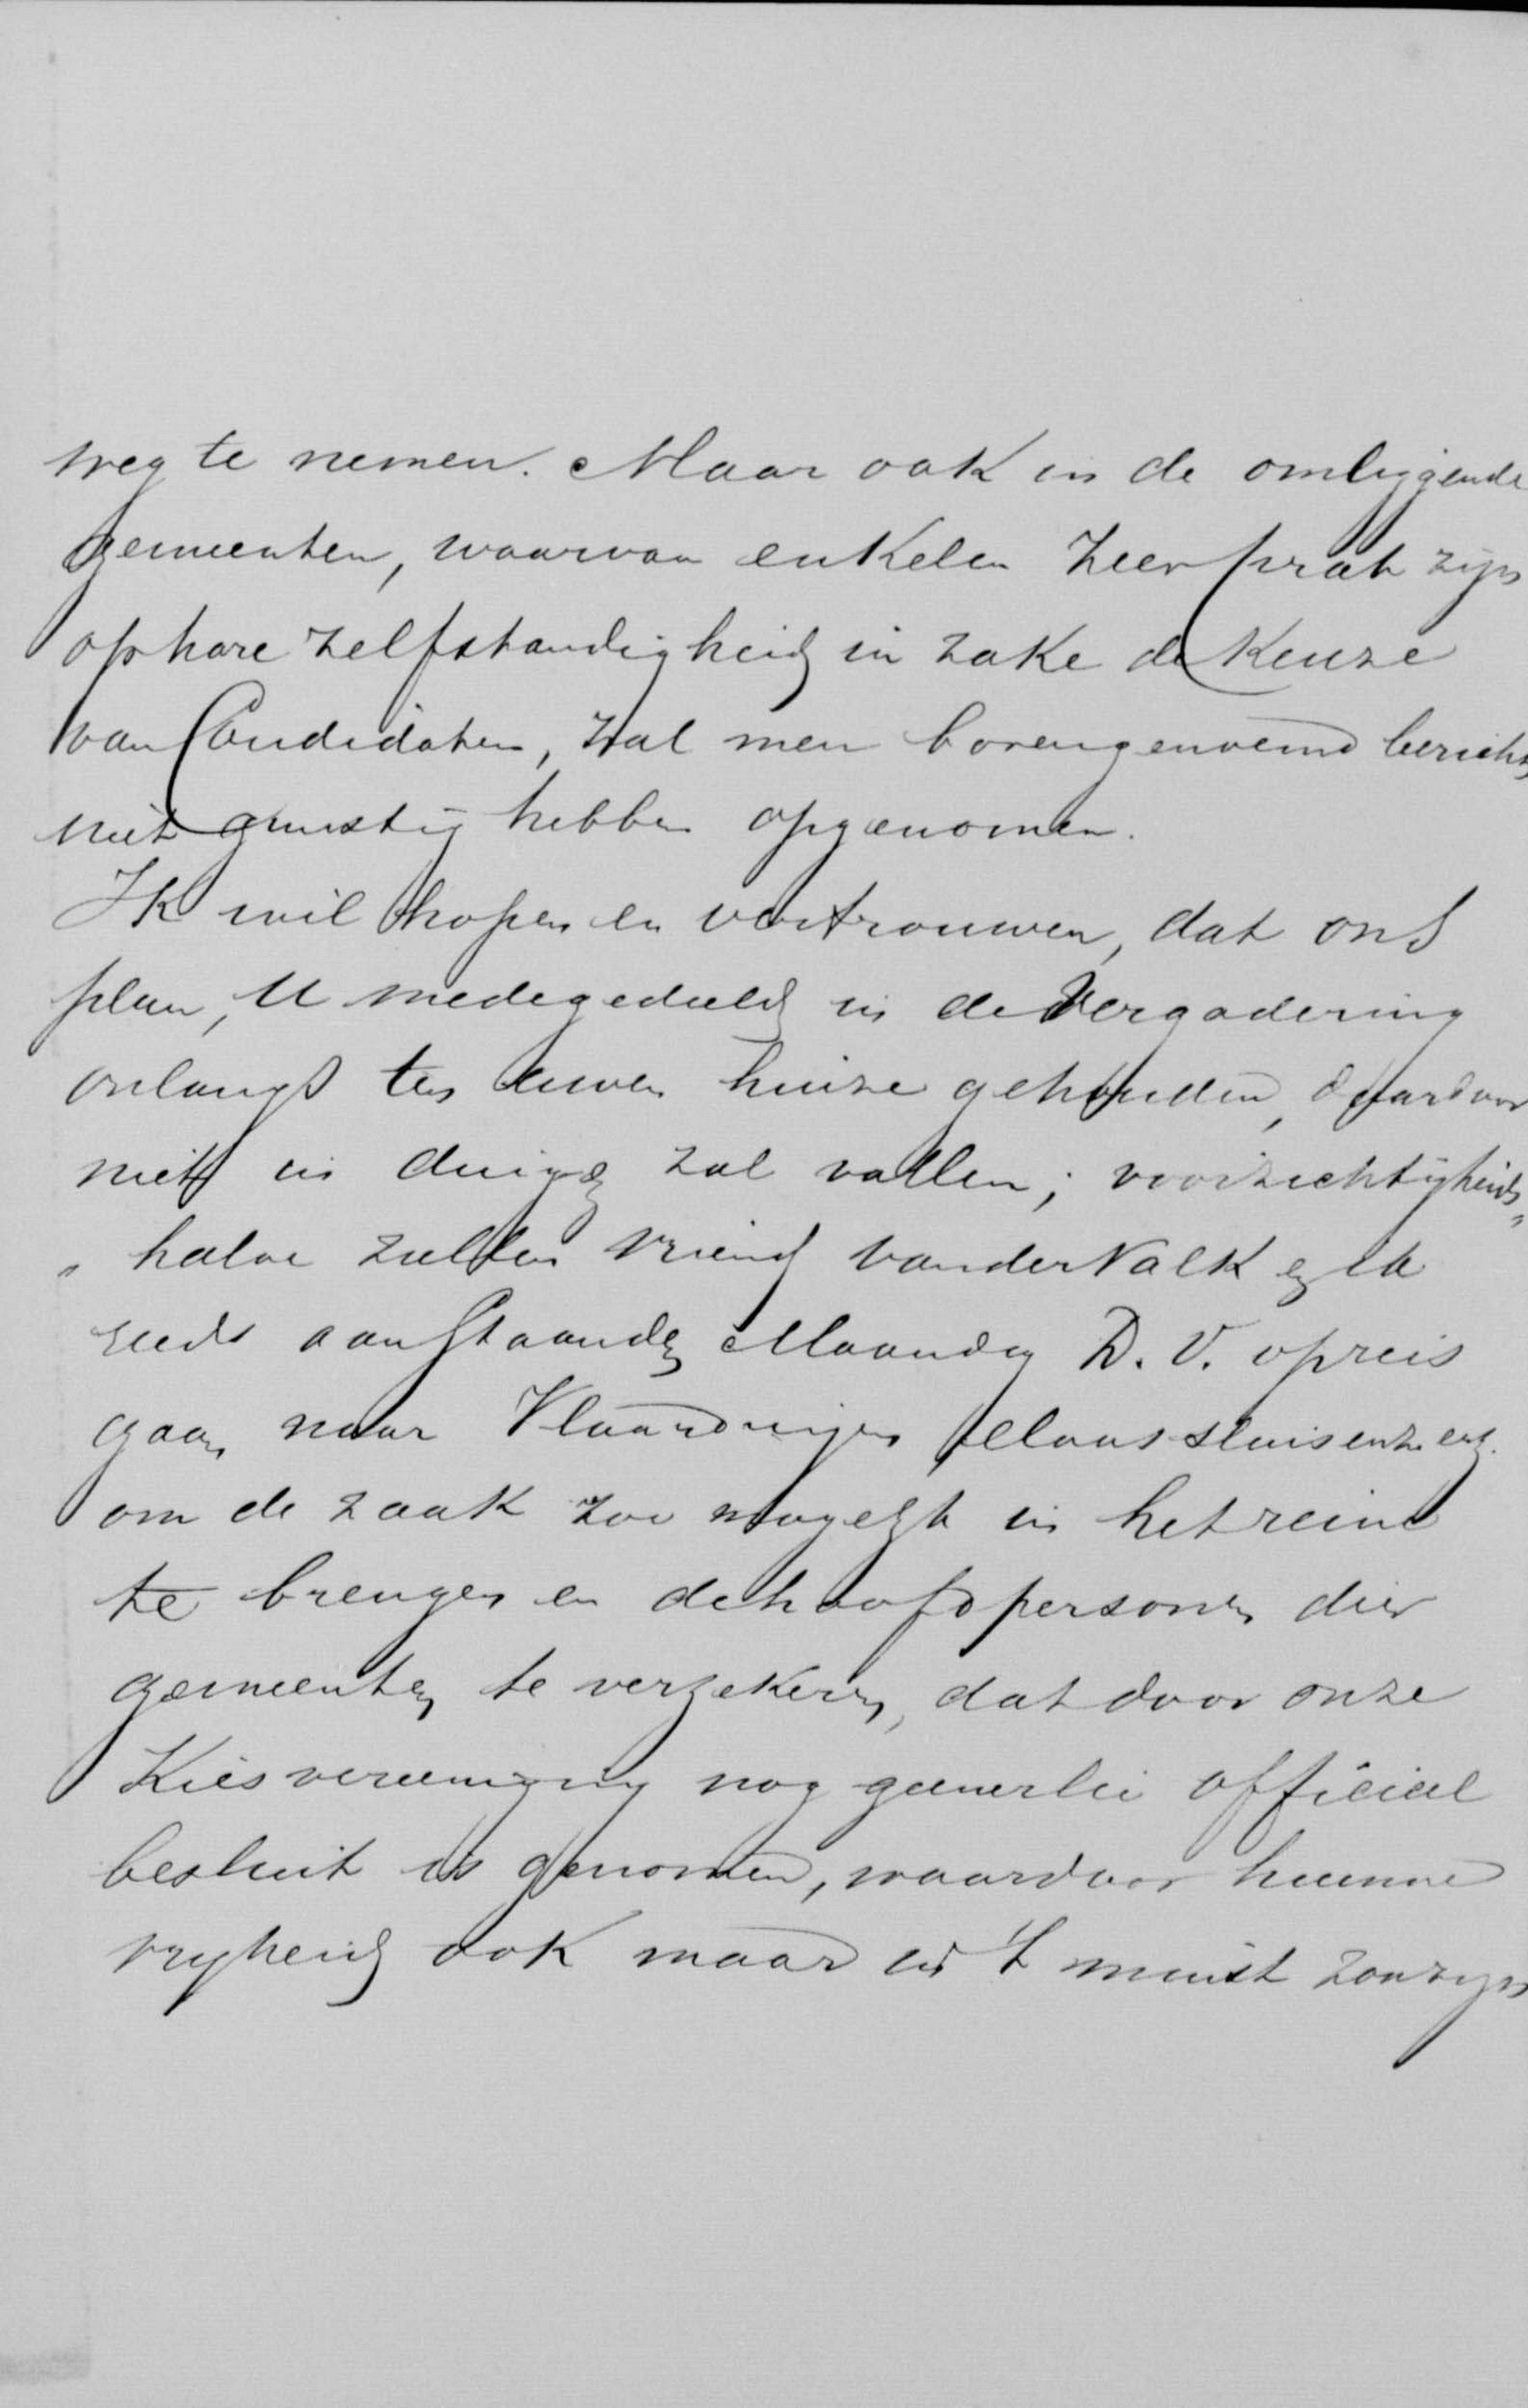 weg te nemen. Maar ook in de omliggende
gemeenten, waarvan enkelen zeer prat zijn
op hare zelfstandigheid in zake de keuze
van Candidaten, zal men bovengenoemd bericht
niet gunstig hebben opgenomen.
Ik wil hopen en vertrouwen, dat ons
plan, U medegedeeld in de Vergadering
onlangs ten uwen huize gehouden, daardoor
niet in duigen zal vallen; voorzichtigheids„
„halve zullen vriend van der Valk en ik
reeds aanstaande Maandag D. V. op reis
gaan naar Vlaardingen Maassluis enz. enz.
om de zaak zoo mogelijk in het reine
te brengen en de hoofdpersonen dier
gemeenten te verzekeren, dat door onze
Kiesvereeniging nog geenerlei officieel
besluit is genomen, waardoor hunne
vrijheid ook maar in 't minst zou zijn